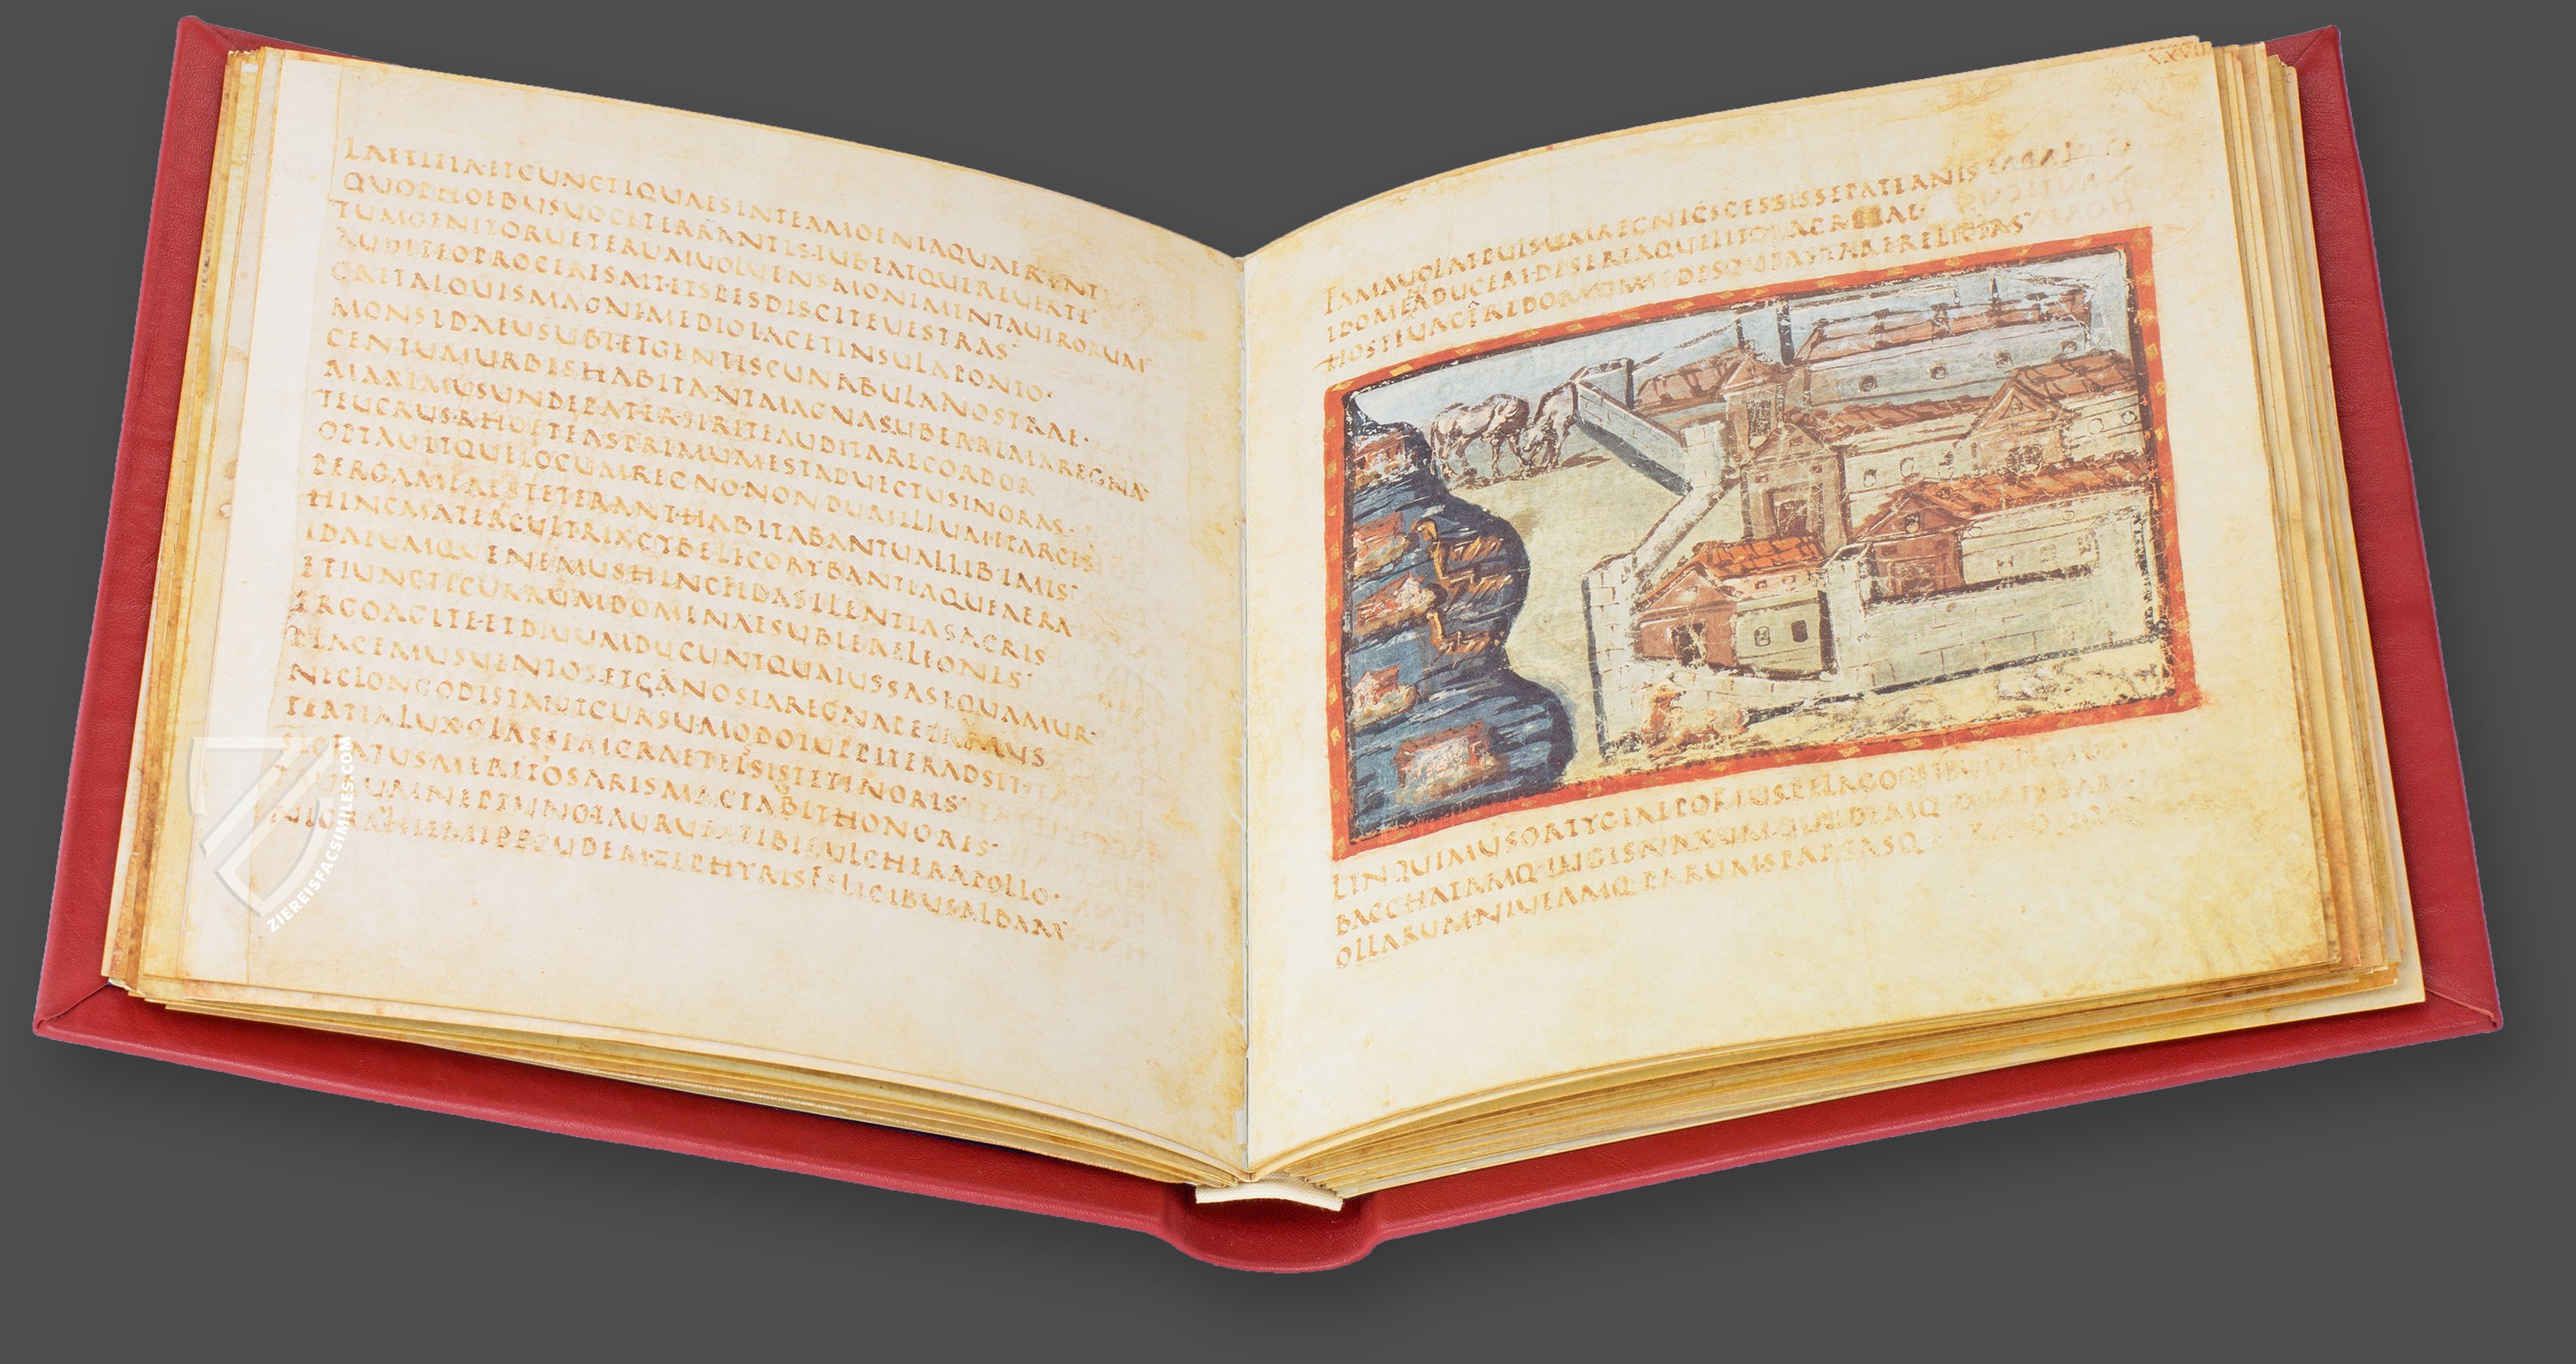 LAETITIA·ETCUNCTIQUAESINTEAMOENIAQUAERUNT
QUOPHOEBUSUOCETERRANTISIUBEATQUEREUERTI
TUMGENITORUETERUMUOLUENSMONIMENTAUIRORUM
AUDITEOPROCERESAITETSPESDISCITEUESTRAS
CRETAIOUISMAGNIMEDIOIACETINSULAPONTO·
MONSIDAEUSUBIETGENTISCUNABULANOSTRAE·
CENTUMURBESHABITANTMAGNASUBERRIMAREGNA
MAXIMUSUNDEPATERSIRITEAUDITARECORDOR
TEUCRUSRHOETEASPRIMUMESTADUECTUSINORAS·
OPTAUITQUELOCUMREGNONONDUMILIUMETARCES
PERGAMEAESTETERANTHABITABANTUALLIBIMIS
HINCMATERCULTRIXCYBELICORYBANTIAQUEAERA
IDAEUMQUENEMUSHINCFIDASILENTIASACRIS
ETIUNCTICURRUMDOMINAESUBIERELEONES
ERGOAGITEETDIUUMDUCUNTQUAIUSSASEQUAMUR·
PLACEMUSUENTOSETGNOSIAREGNAPETAMUS
NECLONGODISTANTCURSUMODOIUPPITERADSIT
TERTIALUXCLASSEMCRAETEISSISTETINORIS
SICFATUSMERITOSARISMACTABITHONORES·
TAURUMNEPTUNOTAURUTIBIPULCHERAPOLLO·
NIGRAHIEMIPECUDEMZEPHYRISFELICIBUSALBAM
ZIEREISFACSIMILES.COM
FAMAUOLATPULSUMREGNISCESSISSEPATERNIS
IDOMEADUCEMDESERTAQUELITORACRETAE
HOSTEUACAREDOMUMSEDESQ·ASTARERELICTAS
LINQUIMUSORTYGIAEPORTUSPELAGOQ
BACCHATAMQIUGISNAXUMUIRIDEMQ
OLLARUMNIUEAMQ·PARUMSPARSASQ